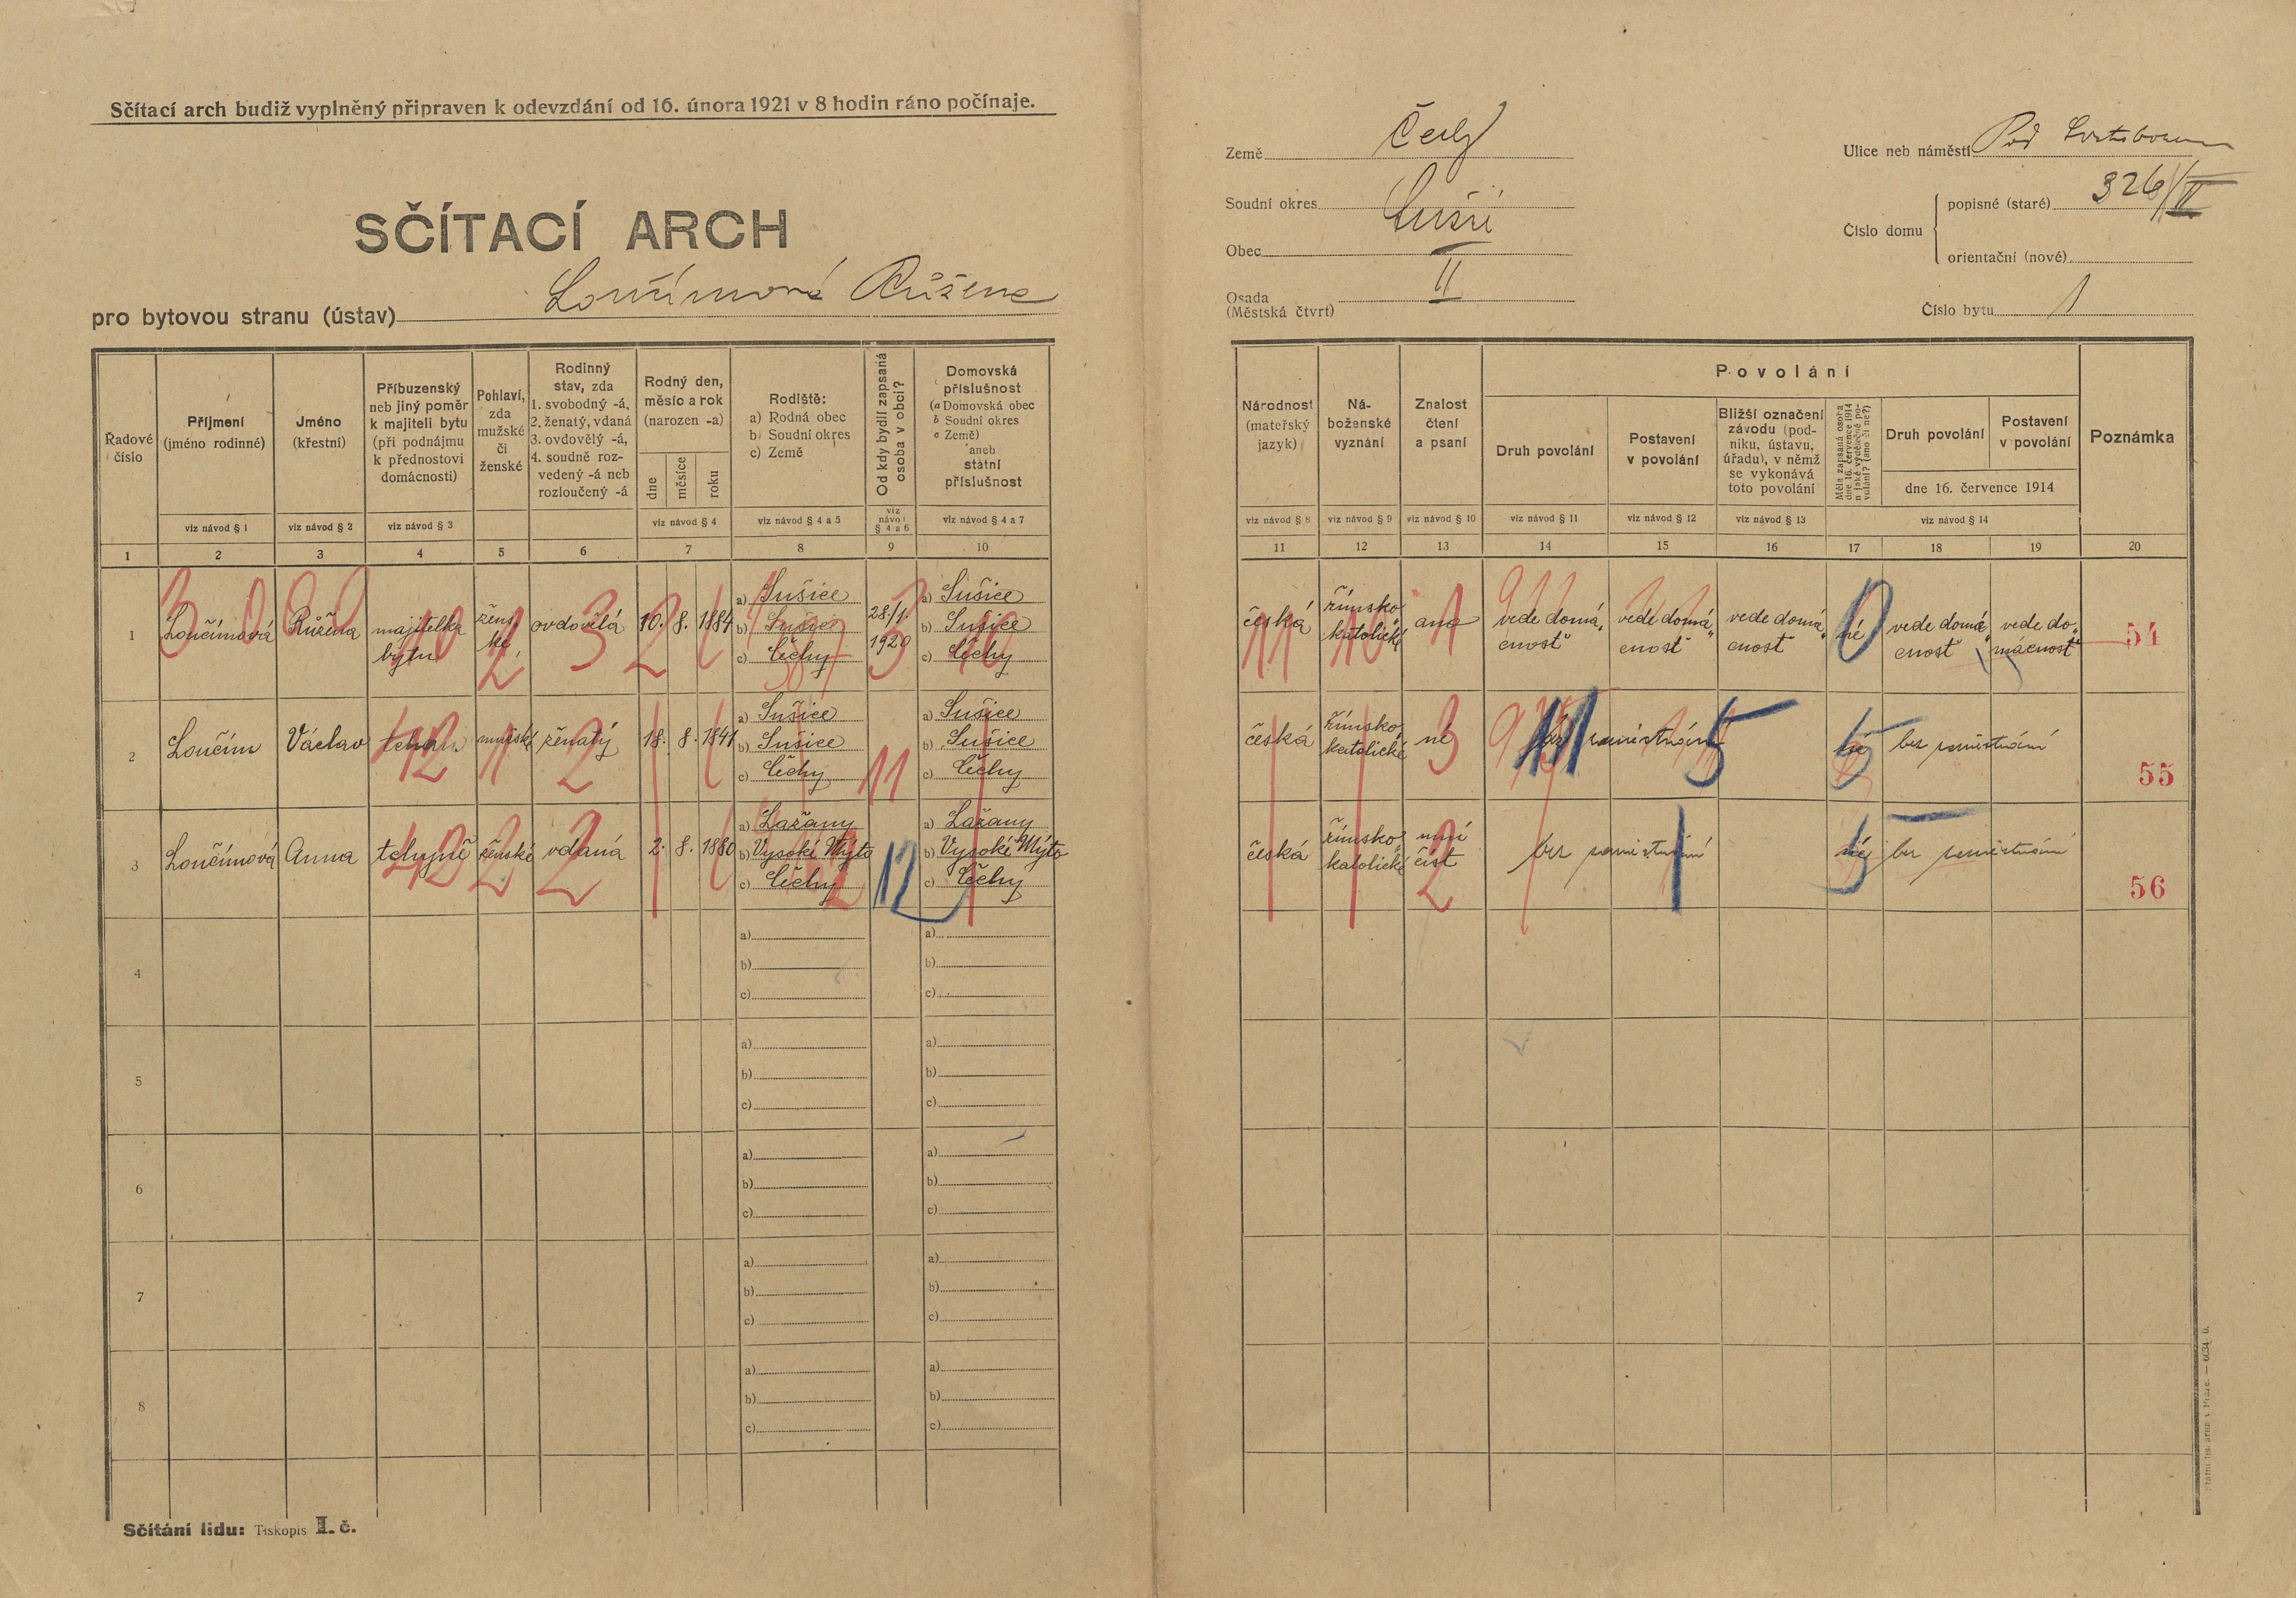 Sčítací arch budiž vyplněný připraven k odevzdání od 16. února 1921 v 8 hodin ráno počínaje.
SČÍTACÍ ARCH
pro bytovou stranu (ústav) Loučímová Růžena
Země Čechy
Soudní okres Sušice
Obec
Osada
(Městská čtvrt) II
Ulice neb náměstí Pod
Číslo domu
popisné (staré) 326/II
orientační (nové)
Číslo bytu 1
Řadové
číslo
Příjmení
(jméno rodinné)
Jméno
(křestní)
Příbuzenský
neb jiný poměr
k majiteli bytu
(při podnájmu
k přednostovi
domácnosti)
Pohlaví,
zda
mužské
či
ženské
Rodinný
stav, zda
1. svobodný -á,
2. ženatý, vdaná
3. ovdovělý -á,
4. soudně roz-
vedený -á neb
rozloučený -á
Rodný den,
měsíc a rok
(narozen -a)
dne
měsíce
roku
Rodiště:
a) Rodná obec
b) Soudní okres
c) Země
Od kdy bydlí zapsaná
osoba v obci?
Domovská
příslušnost
(a Domovská obec
b Soudní okres
c Země)
aneb
státní
příslušnost
viz návod § 1
viz návod § 2
viz návod § 3
viz návod § 4
viz návod § 4 a 5
viz
návod
§ 4 a 6
viz návod § 4 a 7
1 2 3 4 5 6 7 8 9 10
Národnost
(mateřský
jazyk)
Ná-
boženské
vyznání
Znalost
čtení
a psaní
Povolání
Druh povolání
Postavení
v povolání
Bližší označení
závodu (pod-
niku, ústavu,
úřadu), v němž
se vykonává
toto povolání
Měla zapsaná osoba
dne 16. července 1914
nějaké výdělečné po-
volání? (ano či ne?)
Druh povolání
Postavení
v povolání
dne 16. července 1914
Poznámka
viz návod § 8
viz návod § 9
viz návod § 10
viz návod § 11
viz návod § 12
viz návod § 13
viz návod § 14
11 12 13 14 15 16 17 18 19 20
1
Loučímová
Růžena
majitelka
bytu
žens
ké
ovdovělá
10. 8. 1884
a) Sušice
b) Sušice
c) Čechy
28./1.
1920
a) Sušice
b) Sušice
c) Čechy
česká
římsko
katolické
ano
vede domá„
cnosť
vede domá„
cnosť
vede domá„
cnosť
né
vede domá„
cnosť
vede do„
mácnosť
54
2
Loučím
Václav
tchán
mužské
ženatý
18. 8. 1841
a) Sušice
b) Sušice
c) Čechy
11
a) Sušice
b) Sušice
c) Čechy
česká
římsko
katolické
né
5
né
bez
55
3
Loučímová
Anna
tchyně
ženské
vdaná
2. 8. 1880
a) Lažany
b) Vysoké Mýto
c) Čechy
12
a) Lažany
b) Vysoké Mýto
c) Čechy
česká
římsko
katolické
umí
číst
bez
né
bez
56
4
a)
b)
c)
a)
b)
c)
5
a)
b)
c)
a)
b)
c)
6
a)
b)
c)
a)
b)
c)
7
a)
b)
c)
a)
b)
c)
8
a)
b)
c)
a)
b)
c)
Sčítání lidu: Tiskopis I. č.